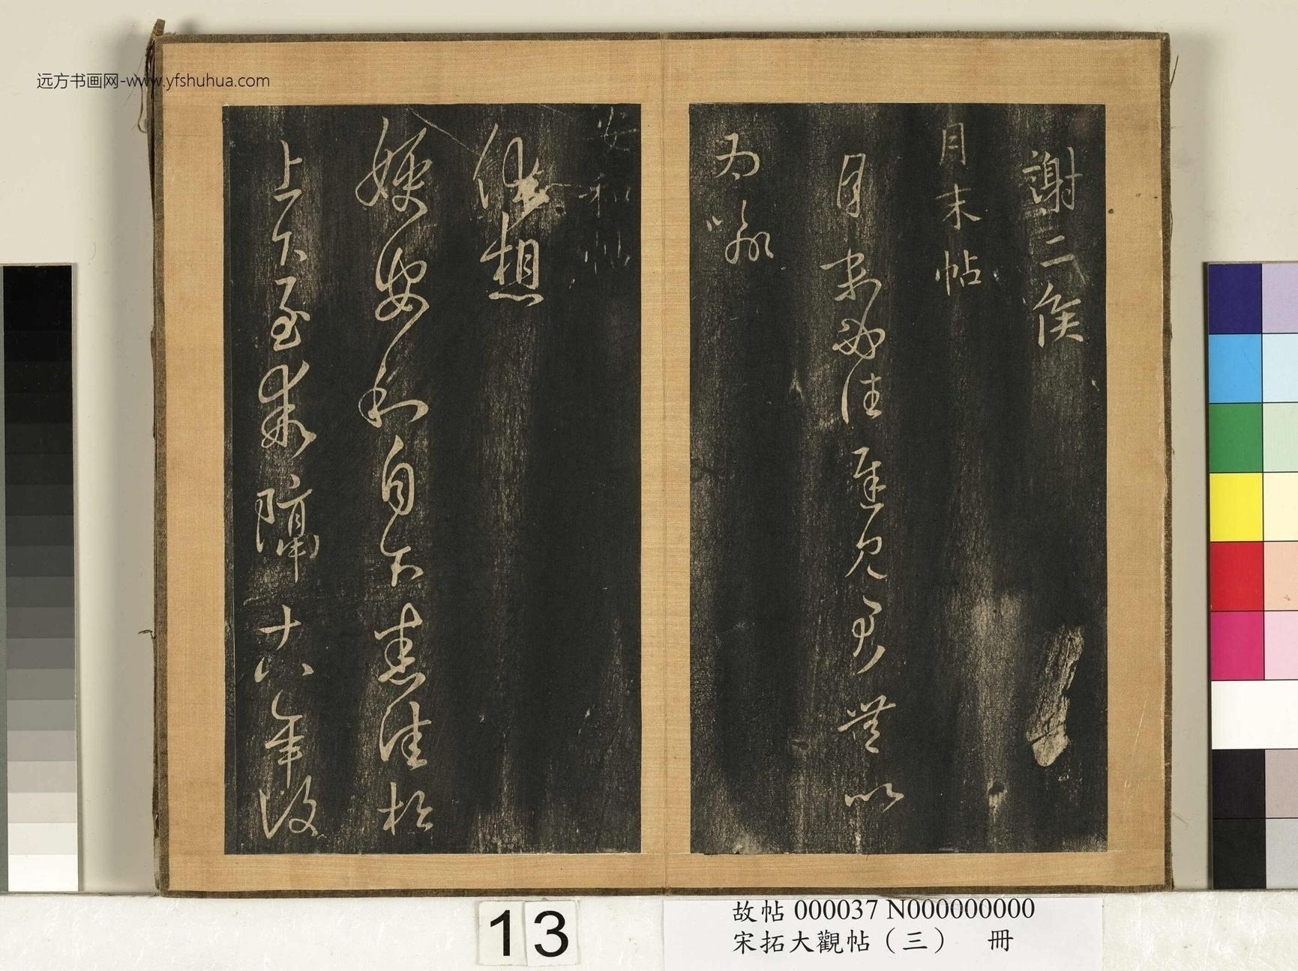 远方书画网-www.yfshuhua.com
謝二侯
月末帖
月末必往遲見君無以
為喻
安和帖
每想
嫂安和自下悉佳松
上下至乖隔十八年復
13
故帖 000037 N000000000
宋拓大觀帖（三） 冊